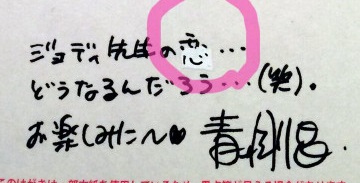 ジョディ先生の恋…
どうなるんだろう…(笑).
お楽しみに〜♥ 青山剛昌.